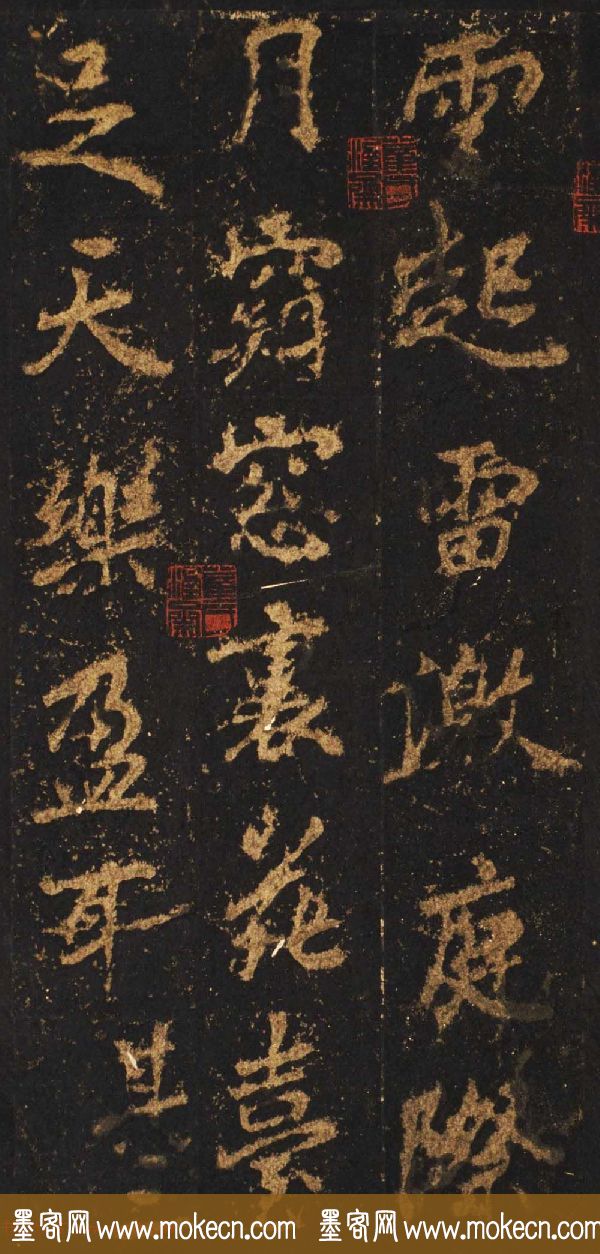 雨起雷激庭際
月窮窓裏花
足天樂盈耳
墨客网 www.mokecn.com 墨客网 www.mokecn.com